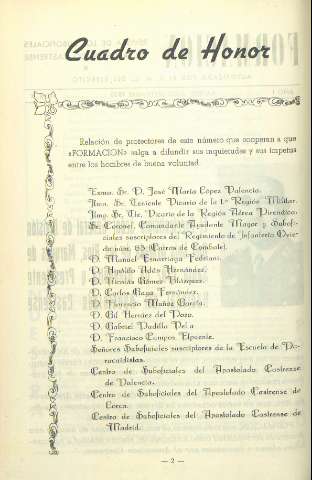 Cuadro de Honor
Relación de protectores de este número que cooperan a que
«FORMACION» salga a difundir sus inquietudes y sus ímpetus
entre los hombres de buena voluntad.
Excmo. Sr. D. José María López Valencia.
Ilmo. Sr. Teniente Vicario de la 1.ª Región Militar.
Ilmo. Sr. Tte. Vicario de la Región Aérea Pirenáica.
Sr. Coronel, Comandante Ayudante Mayor y Subofi-
ciales suscriptores del Regimiento de Infantería
de núm. 63 (Carros de Combate).
D. Manuel
D. Hipólito Hernández.
D. Nicolás Gómez Blázquez.
D. Carlos Fernández.
D. Florencio Muñoz García.
D. Gil Herráez del Pozo.
D. Gabriel Padilla
D. Francisco Campos
Señores Suboficiales suscriptores de la Escuela de Pa-
racaidistas.
Centro de Suboficiales del Apostolado Castrense
de Valencia.
Centro de Suboficiales del Apostolado Castrense de
Lorca.
Centro de Suboficiales del Apostolado Castrense de
Madrid.
— 2 —